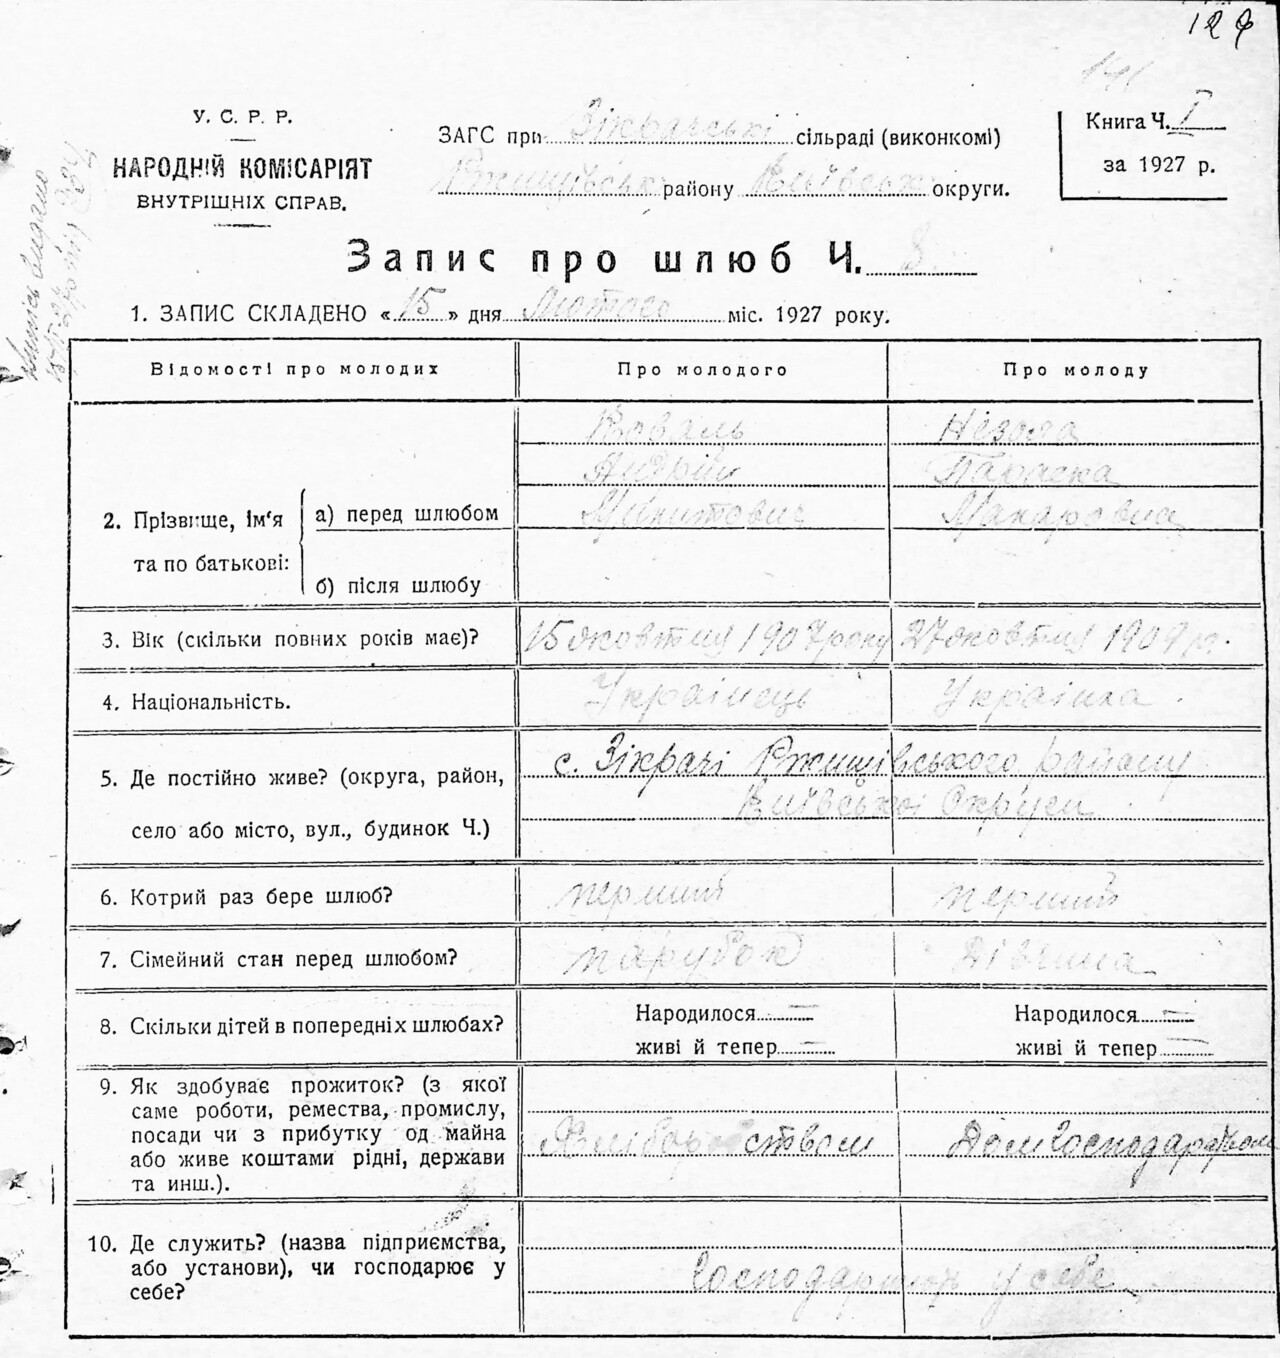 У. С. Р. Р.
НАРОДНІЙ КОМІСАРІЯТ
ВНУТРІШНІХ СПРАВ.
ЗАГС при Зікрачські сільраді (виконкомі)
Ржищівськ району Київськ округи.
Книга Ч. I
за 1927 р.
Запис про шлюб Ч. 8
1. ЗАПИС СКЛАДЕНО « 15 » дня лютого міс. 1927 року.
Відомості про молодих Про молодого Про молоду
2. Прізвище, ім'я та по батькові:
а) перед шлюбом
Коваль
Андрій Параска
Микитович Макаровна
б) після шлюбу
3. Вік (скільки повних років має)? 15 жовтня 1907 року 27 жовтня 1909 р.
4. Національність. Українець Українка
5. Де постійно живе? (округа, район, с. Зікрачі Ржищівського району
село або місто, вул., будинок Ч.) Київської Округи
6. Котрий раз бере шлюб? перший перший
7. Сімейний стан перед шлюбом? парубок дівчина
8. Скільки дітей в попередніх шлюбах? Народилося — Народилося —
живі й тепер — живі й тепер —
9. Як здобуває прожиток? (з якої
саме роботи, ремества, промислу,
посади чи з прибутку од майна
або живе коштами рідні, держави
та инш.).
10. Де служить? (назва підприємства,
або установи), чи господарює у
себе?
у себе